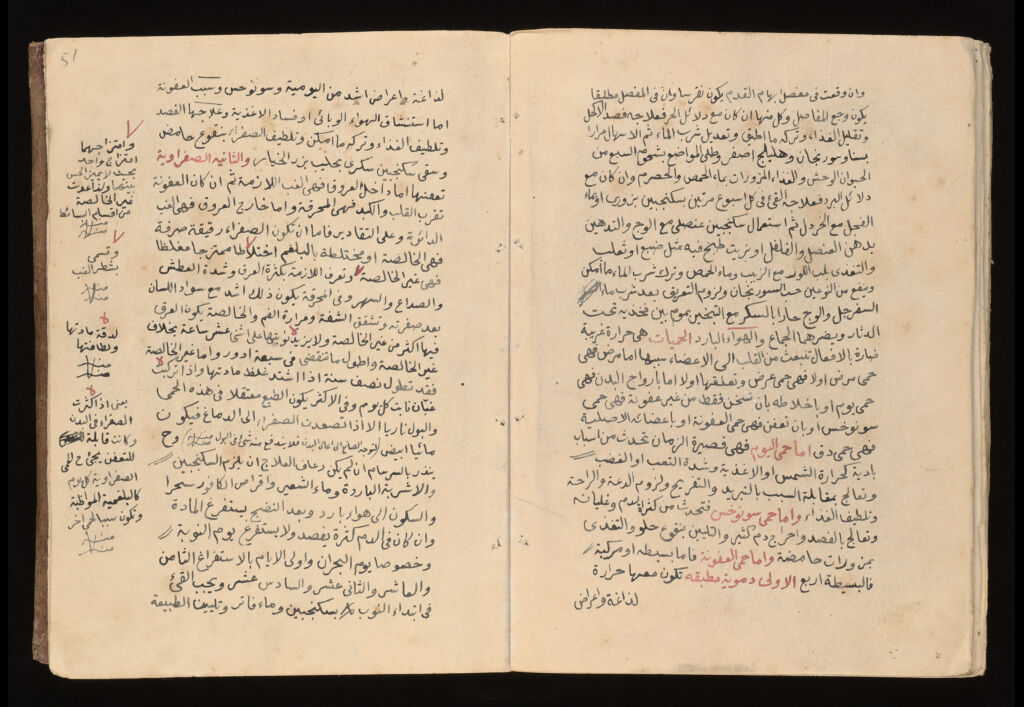 وان وقعت فى مفصل ابهام القدم يكون نقرسا وان فى المفصل مطلقا
يكون وجع المفاصل وكل منها ان كان مع دلائل الحر فعلاجه فصد الاكحل
وتقليل الغذاء وتركه ما اطبق وتعديل شرب الماء ثم الاسهال مرارا
بسنا وسورنجان وهليلج اصفر وطلى المواضع بشحوم السبع من
الحيوان الوحش والغذاء المزورات بماء الحمص والحصرم وان كان مع
دلائل البرد فعلاجه القئ فى كل اسبوع مرتين بسكنجبين بزورى او ماء
الفجل مع الخردل ثم استعمال سكنجبين عنصلى مع الوج والتدهين
بدهن العنصل والفلفل او بزيت طبخ فيه مثل ضبع او ثعلب
والتغدى بلب اللوز مع الزبيب وماء الحمص وترك شرب الماء ما امكن
وينفع من النوعين حب السورنجان ولزوم التعريق بعد شرب ماء
السفرجل والوج حارا بالسكر مع التبخير بموم بين فخديه تحت
الدثار ويضرهما الجماع والهواء البارد الحميات هى حرارة غريبة
ضارة بالافعال تنبعث من القلب الى الاعضاء سببها اما مرض فهى
حمى مرض اولا فهى حمى عرض وتعلقها اولا اما بارواح البدن فهى
حمى يوم او باخلاطه بان تسخن فقط من غير عفونة فهى حمى
سونوخس او بان تعفن فهى حمى العفونة او باعضائه الاصلية
فهى حمى دق اما حمى اليوم فهى قصيرة الزمان تحدث من اسباب
بادية كحرارة الشمس او الاغذية وشدة التعب او الغضب
وتعالج بمقابلة السبب بالتبريد والتفريح ولزوم الدعة والراحة
وتلطيف الغذاء واما حمى سونوخس فتحدث من كثرة الدم وغليانه
وتعالج بالفصد واخراج دم كثير والتليين بنقوع حلو والتغدى
بمزورات حامضة واما حمى العفونة فاما بسيطه او مركبة
فالبسيطة اربع الاولى دموية مطبقه تكون معها حرارة
لذاغة واعراض
51
لذاغة واعراض اشد من اليومية وسونوخس وسبب العفونة
اما استنشاق الهواء الوبائى او فساد الاغذية وعلاجها الفصد
وتلطيف الغذاء وتركه ما امكن وتلطيف الصفراء بنقوع حامض
وسقى سكنجبين سكرى بحليب بزر الخيار والثانية الصفراوية
تعفنها اما داخل العروق فهى الغب اللازمة ثم ان كان العفونة
تقرب القلب والكبد فهى المحرقة واما خارج العروق فهى الغب
الدائرة وعلى التقادير فاما ان تكون الصفراء رقيقة صرفة
فهى الخالصة او مختلطة بالبلغم اختلاطا ممتزجا مغلظا
فهى غير الخالصة وتعرف اللازمة بكثرة العرق وشدة العطش
والصداع والسهر وفى المحرقة يكون ذلك اشد مع سواد اللسان
بعد صفرته وتشقق الشفة ومرارة الفم والخالصة يكون العرق
فيها اكثر من غير الخالصة ولا يزيد نوبتها على اثنى عشر ساعة بخلاف
غير الخالصة واطول ما تنقضى فى سبعة ادور واما غير الخالصة
فقد تطول نصف سنة اذا اشتد غلظ مادتها واذا تركبت
غبان نابت كل يوم وفى الاكثر يكون الطبع معتقلا فى هذه الحمى
والبول ناريا الا اذا تصعدت الصفراء الى الدماغ فيكون
مائيا ابيض وح
ينذر بالسرسام ان لم يكن رعاف العلاج ان يلزم السكنجبين
والاشربة الباردة وماء الشعير واقراص الكافور سحرا
والسكون الى هواء بارد وبعد النضج يستفرغ المادة
وان كان فى الدم كثرة يفصد ولا يستفرغ يوم النوبة
وخصوصا يوم البحران واولى الايام بالاستفراغ الثامن
والعاشر والثانى عشر والسادس عشر ويجب القئ
فى ابتداء النوب بسكنجبين وماء فاتر وتليين الطبيعة
وامتزاجهما
امتزاج واحد
بحيث لا يميز الحس
غير الخالصة
من اقسام البسائط
وتسمى
بشطر الغب
لدقة مادتها
ونظافتها
يعنى اذا كثرت
الصفراء فى البدن
وكانت قابلة
للتعفن يجئ ح الحمى
الصفراوية كل يوم
كالبلغمية المواظبة
وتكون سببا لحمى اخر